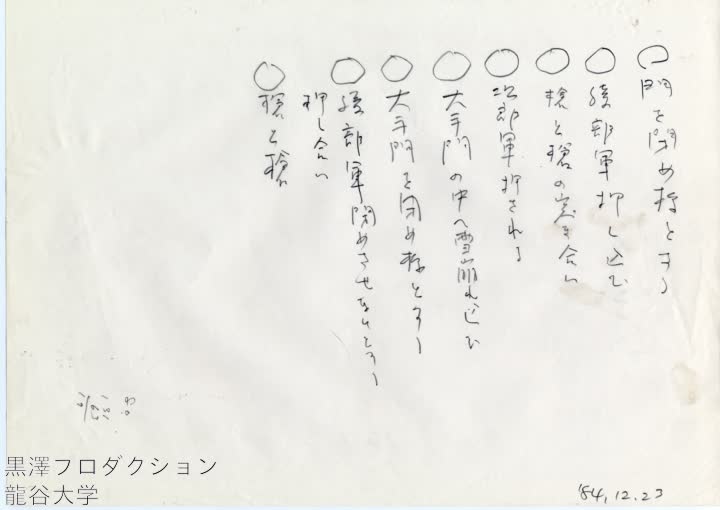 ○門を閉め様とする
○綾部軍押し込む
○槍と槍の突き合い
○次郎軍押される
○大手門の中へ雪崩れ込む
○大手門を閉め様とする
○綾部軍閉めさせまいとする
押し合い
○槍と槍
'84.12.23
黒澤フロダクション
龍谷大学